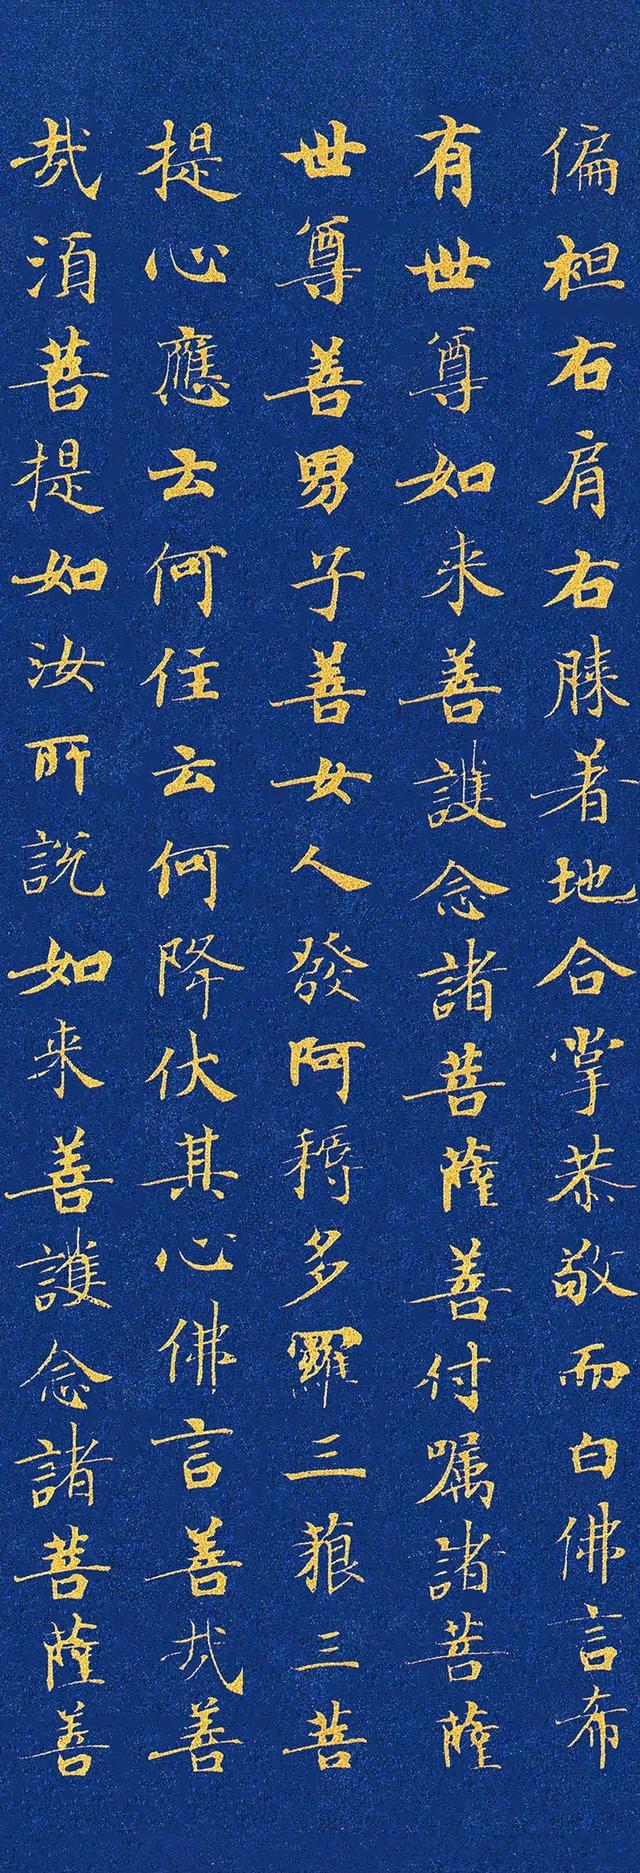 偏袒右肩右膝著地合掌恭敬而白佛言希
有世尊如来善護念諸菩薩善付嘱諸菩薩
世尊善男子善女人發阿耨多羅三藐三菩
提心應云何住云何降伏其心佛言善哉善
哉湏菩提如汝所說如来善護念諸菩薩善